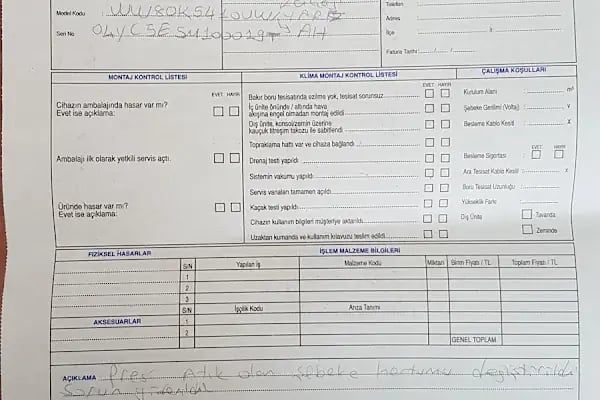 Telefon:
Model Kodu
Adres
Seri No
İlçe : İl:
Fatura Tarihi: / /
MONTAJ KONTROL LİSTESİ
EVET HAYIR
Cihazın ambalajında hasar var mı?
Evet ise açıklama:
Ambalajı ilk olarak yetkili servis açtı.
Üründe hasar var mı?
Evet ise açıklama:
KLİMA MONTAJ KONTROL LİSTESİ
EVET HAYIR
Bakır boru tesisatında ezilme yok, tesisat sorunsuz
İç ünite önünde / altında hava
akışına engel olmadan montaj edildi
Dış ünite, konsol/zemin üzerine
kauçuk titreşim takozu ile sabitlendi
Topraklama hattı var ve cihaza bağlandı
Drenaj testi yapıldı
Sistemin vakumu yapıldı
Servis vanaları tamamen açıldı
Kaçak testi yapıldı
Cihazın kullanım bilgileri müşteriye aktarıldı
Uzaktan kumanda ve kullanım kılavuzu teslim edildi
ÇALIŞMA KOŞULLARI
Kurulum Alanı : m²
Şebeke Gerilimi (Voltaj) : V
Besleme Kablo Kesiti : X
EVET HAYIR
Besleme Sigortası :
Ara Tesisat Kablo Kesiti : X
Boru Tesisat Uzunluğu :
Yükseklik Farkı :
Dış Ünite : Tavanda
Zeminde
FİZİKSEL HASARLAR
İŞLEM MALZEME BİLGİLERİ
S/N Yapılan İş Malzeme Kodu Miktarı Birim Fiyatı / TL Toplam Fiyatı / TL
1
2
3
S/N İşçilik Kodu Arıza Tanımı
AKSESUARLAR
1
2
GENEL TOPLAM
AÇIKLAMA olan şebeke hortumu değiştirildi
Sorun